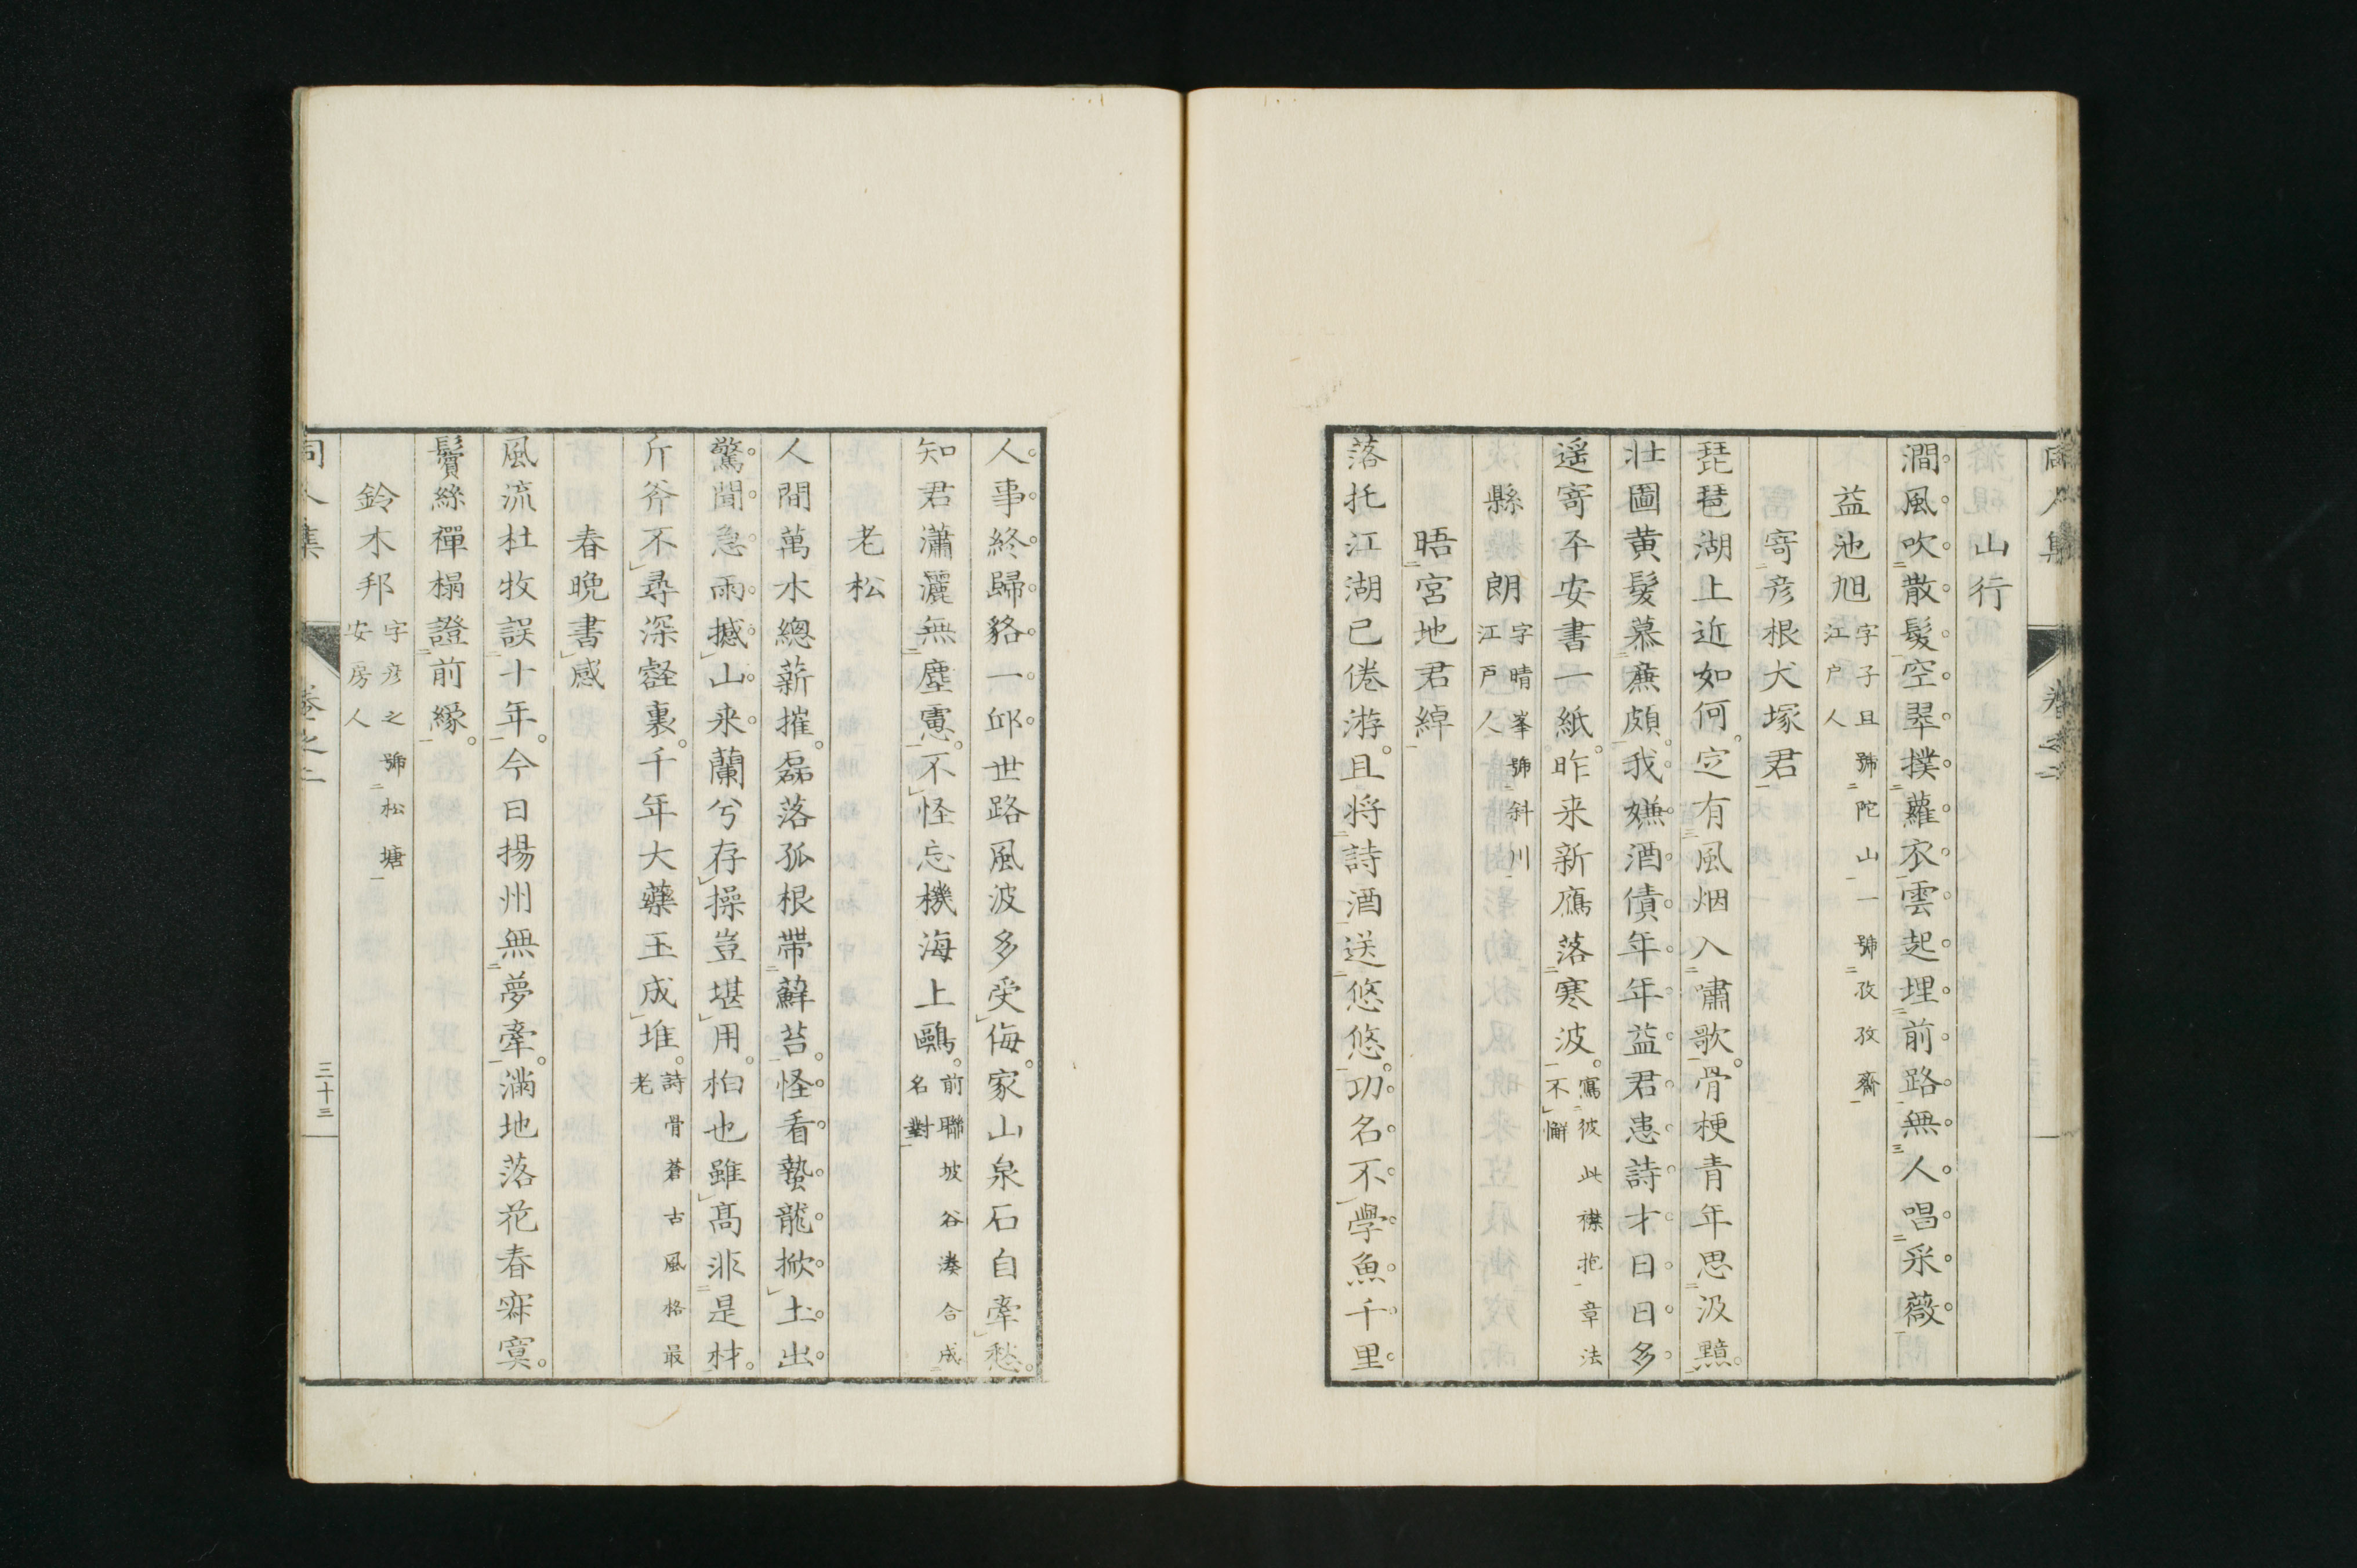 山行
澗風吹散髮空翠撲蘿衣雲起埋前路無人唱采薇
益池旭 字子且號陀山一號孜孜齋
江戶人
寄彥根犬塚君
琵琶湖上近如何定有風烟入嘯歌骨梗青年思汲黯
壯圖黃髮慕廉頗我嫌酒債年年益君患詩才日日多
遥寄平安書一紙昨来新鴈落寒波 寫彼此襟抱章法
不懈
縣朗 字晴峯號斜川
江戶人
晤宮地君綽
落托江湖已倦游且将詩酒送悠悠功名不學魚千里
人事終歸貉一邱世路風波多受侮家山泉石自牽愁
知君瀟灑無塵慮不怪忘機海上鷗 前聯坡谷湊合成
名對
老松
人間萬木總薪摧磊落孤根帶蘚苔怪看蟄龍掀土出
驚聞急雨撼山来蘭兮存操豈堪用柏也雖高非是材
斤斧不尋深壑裏千年大藥玉成堆 詩骨蒼古風格最
老
春晩書感
風流杜牧誤十年今日揚州無夢牽滿地落花春寂寞
鬢絲禪榻證前緣
鈴木邦 字彥之號松塘
安房人
同人集 卷之二 三十三